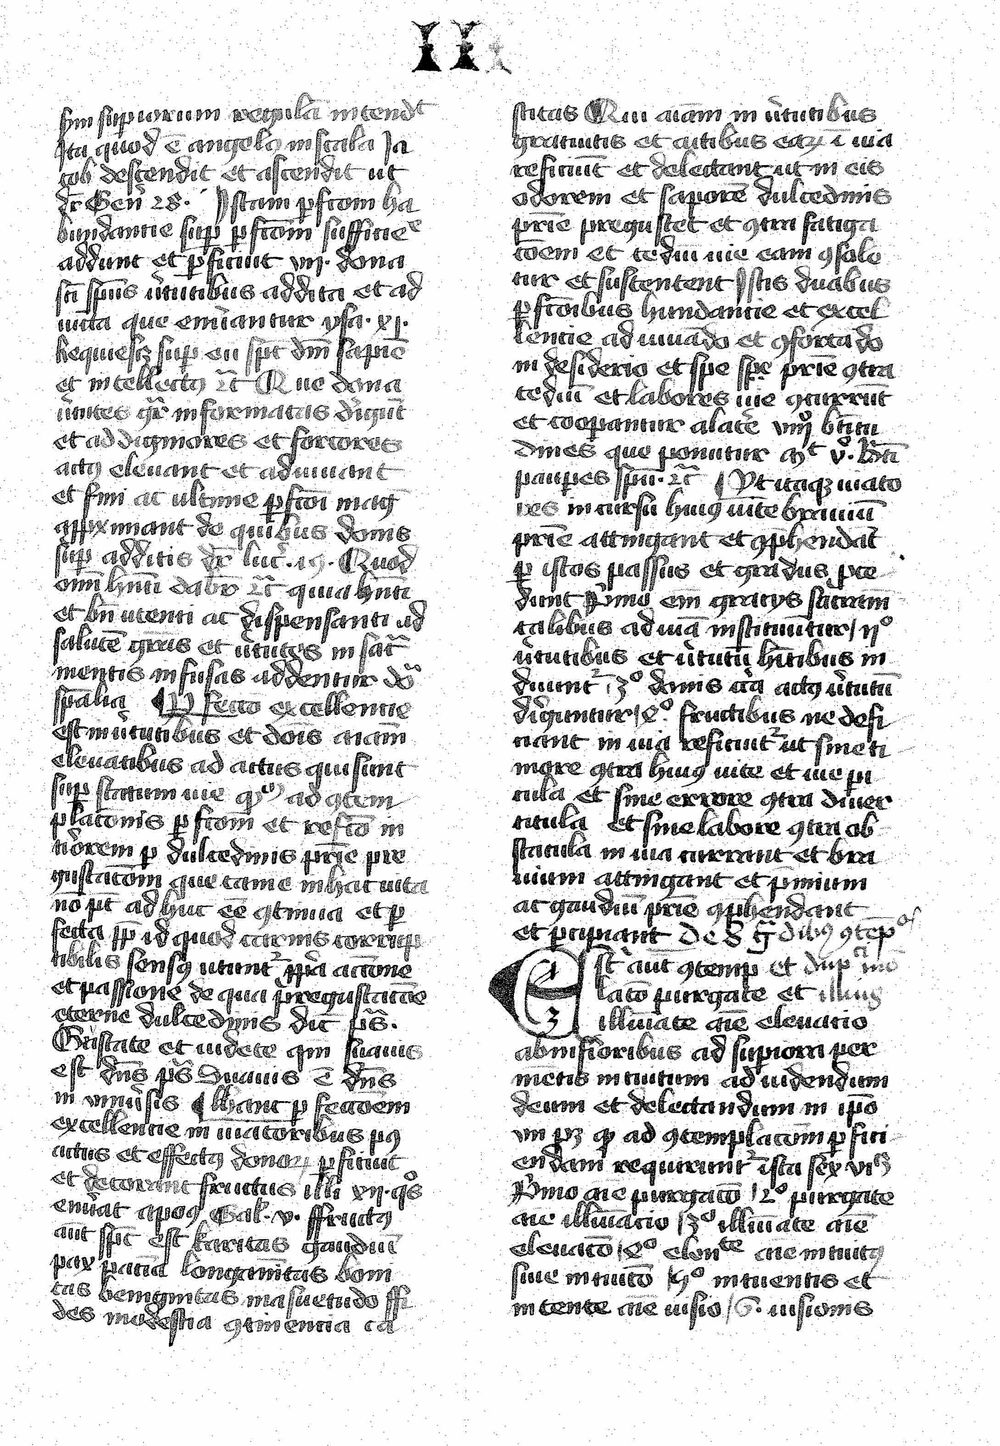 III
sym superiorum regulā intendt
Ita quod ē angelꝯ in scala Ja
cob descendit et ascendit ut
dr̄ Gen̄ 28. Istam ꝑfcōm ha
bundantie suꝑ ꝑfcōm sufficie
addunt et ꝑficiunt vij. dona
sci sp̄us v̄tutibus addita et ad
iuta que emīantur ysa. xj.
Requiescꝫ suꝑ eū sp̄c dn̄i sapiē
et intellectꝯ ꝛc̄ Que dona
v̄tutes gr̄ informatas dīgūt
et ad digniores et forcōres
actꝯ eleuant et adiuuant
et fini ac ultime ꝑfcōi maḡ
aꝓximant de quibus donis
suꝑ additis dr̄ luc̄. 19. Quod
om̄i hn̄ti dabr̄ ꝛc̄ quia hn̄ti
et bn̄ utenti ac dispensanti ad
salutē gr̄as et v̄tutes in sac̄
mentis infusas addentur dō
sp̄alia ¶ Pfectō excellentie
est in v̄tutibus et dōis aīam
eleuatibus ad actus qui sunt
suꝑ statum uie ad ꝯtem
platōnis ꝑfcōm et refcō in
tīorem ꝑ dulcedinis pr̄ie pre
gustacōm que tamē in hac uita
nō pt̄ ad huc eē ꝯtinua et ꝑ
fecta ꝓp̄ id quod carnis corrup
tibilis sensꝯ utunt̄ ꝓpa actōne
et passione de qua p̄regustacōe
eterne dulcedinis dic̄ ps̄.
Gustate et uidete qm̄ suauis
est dn̄s ps̄ Suauis ē dn̄s
in vniūsis ¶ hanc ꝑfectōem
excellentie in uiatoribus pꝰ
actus et effectꝯ donoꝝ ꝑficiūt
et decorant fructus illi xij. qᵒs
enūat apoꝯ Gal. v. ffructꝯ
aūt sp̄c est karitas gaudiū
pax paciā longanitas boni
tas benignitas māsuetudo ffi
des modestia ꝯtinencia ca
stitas Qui aīam in v̄tutibus
gratuitis et actibus eaꝝ ī uia
reficiūt et delectant ut in eis
odorem et saporē dulcedinis
pr̄ie pregustet et ꝯtra fatiga
cōem et tediū uie eam ꝯsole
tur et sustentent Istis duabus
ꝑfcōnibus hundantie et excel
lentie adiuuādo et ꝯfortādo
in desiderio et spe pr̄ie ꝯtra
tediū et labores uie ꝯcurrūt
et coopantur alacre viij btitu
dines que ponuntur v. Bti
pauꝑes sp̄u. ꝛc̄ ¶ Ut itaqꝫ uiato
res in cursu huiꝯ uite brauiū
pr̄ie attingant et ꝯphendāt
ꝑ istos passus et gradus p̄ce
dunt Pimo em̄ gracijs sacram
talibus ad uiā instituūtur / 2º
v̄tutibus et v̄tutū hn̄tibus in
duunt̄ / 3º donis actꝯ v̄tutū
dīguntur / 4º. fructibus ne defi
ciant in uia reficiūt̄ ut sine ti
more ꝯtra huiꝯ uite et uie pi
cula et sine errore ꝯtra diuer
ticula et sine labore ꝯtra ob
stacula in uia currant et bra
uium attingant et p̄mium
ac gaudiū pr̄ie ꝯphendant
et ꝑcipiant De S ḡdibꝯ ꝯtēpᵒs
Est aūt ꝯtemp et
lacō purgate et illuiꝯ
illūiate aīe eleuatio
ab inf̄ioribus ad supiora per
mētis intuitum ad uidendum
deum et delectandum in ipō
vn pꝫ ꝙ ad ꝯtemplacōm ꝑfici
endam requirunt̄ ista sex
Pimo aīe purgacō / 2º purgate
aīe illūiacio / 3º illūiate aīe
eleuacō / 4º aīe intuitꝯ
siue intuitō / 5º intuentis et
intente aīe uisio / 6. uisionis